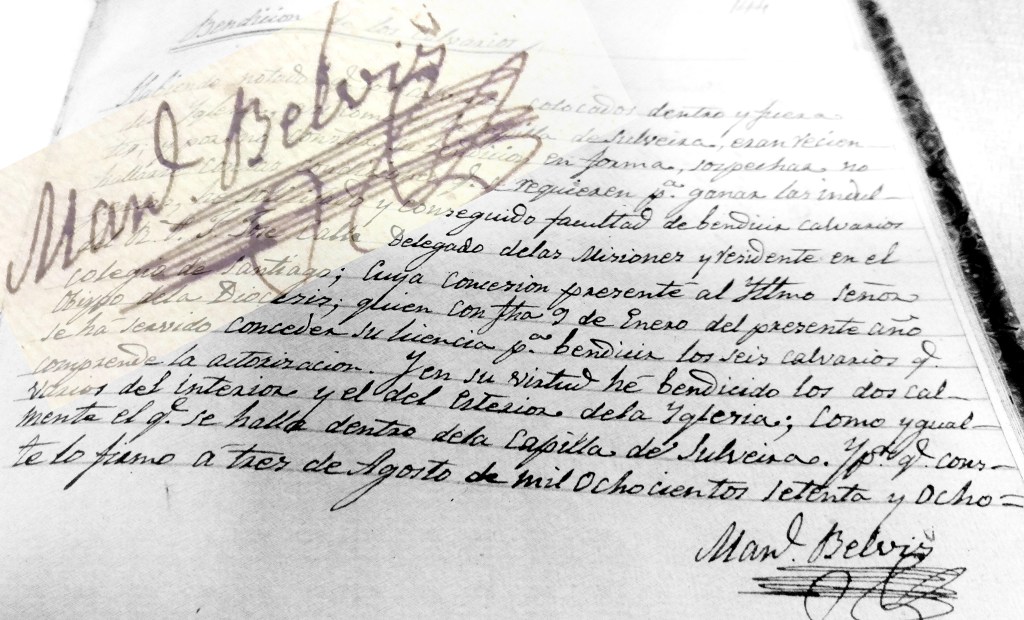 Bendicion de los calvarios
Habiendo notado colocados dentro y fuera
Capilla de Silveira, eran recien
en forma, sospechar no
requieren pª. ganar las indul-
y conseguido facultad de bendicir calvarios
Delegado de las Misiones y residente en el
colegio de Santiago; Cuya concesion presenté al Iltmo Señor
Obispo de la Diocesis; quien con fha 9 de Enero del presente año
se ha servido conceder su licencia pª. bendicir los seis calvarios q.
comprende la autorizacion. Y en su virtud hé bendicido los dos cal-
varios del interior y el del Esterior dela Yglesia; como ygual-
mente el q. se halla dentro dela capilla de Silveira. Y pª. q. cons-
te lo firmo a tres de Agosto de mil Ochocientos setenta y Ocho=
Manl. Belvis
Manl. Belvis